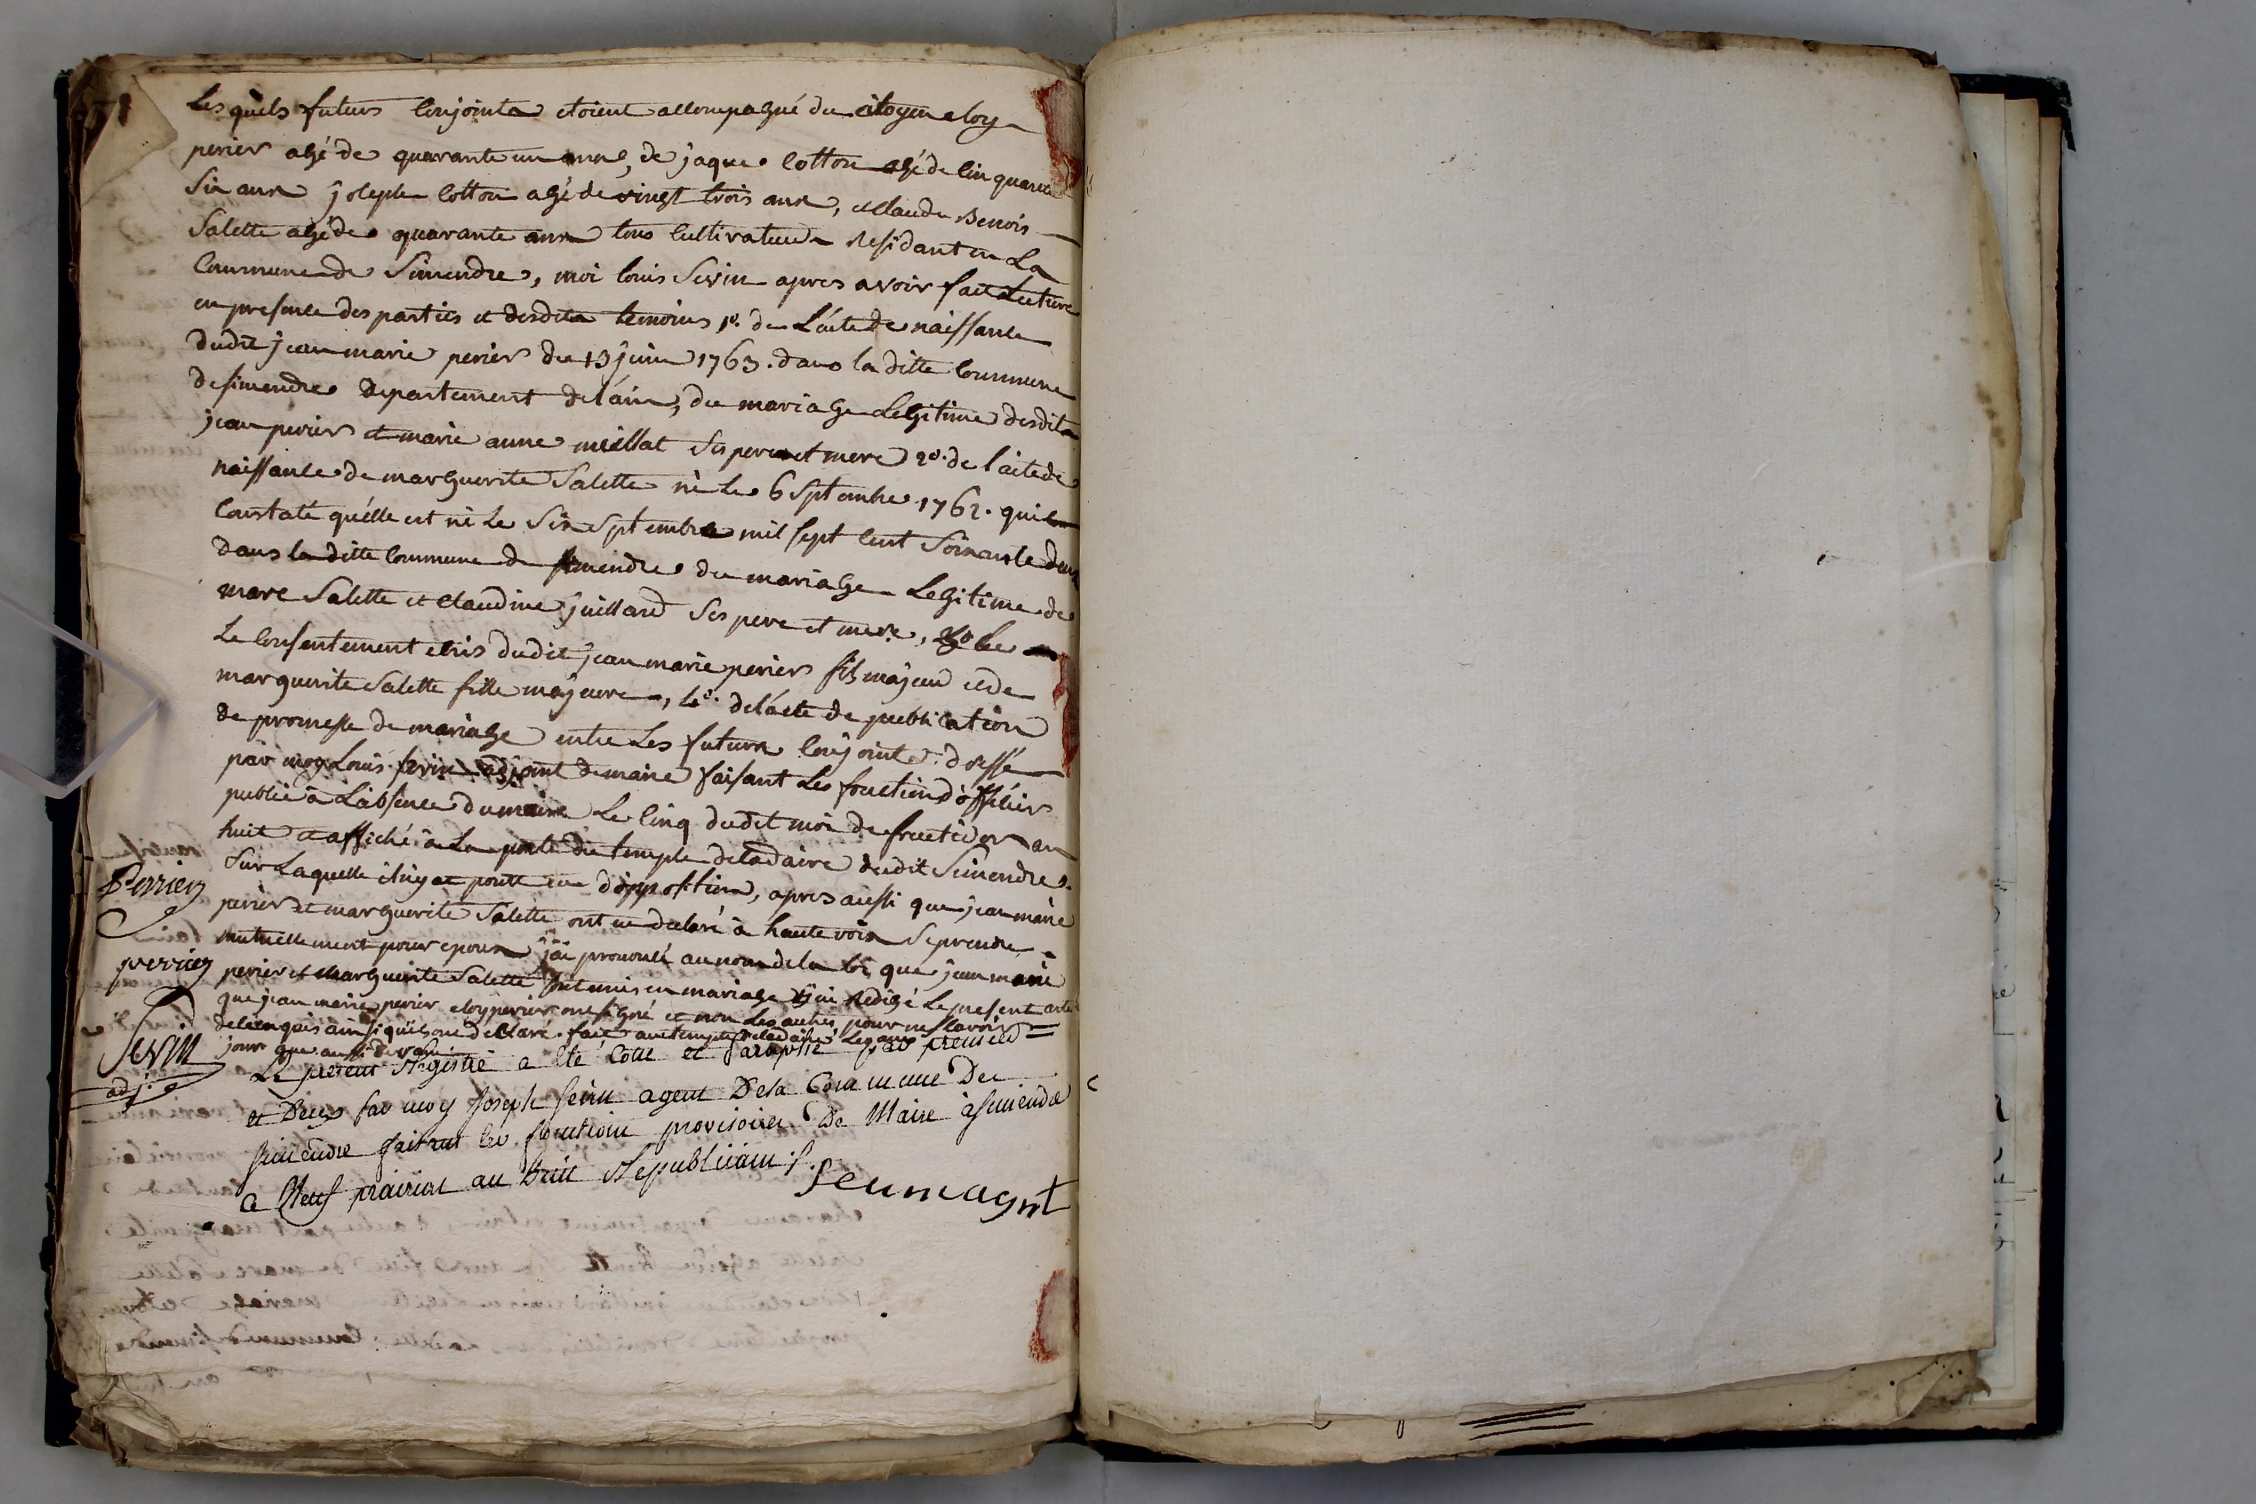 Lesquels futurs Conjoints etoient accompagné du citoyen eloy
perier agé de quarante un ans, de jaque Cotton agé de Cinquante
Six ans joseph Cotton agé de vingt trois ans, et Claude Benois
Salette agé de quarante ans tous Cultivateurs Residant en La
Commune de Simendre, moi louis Sevin apres avoir fait Lecture
en presence des parties et desdits temoins 1º. de L'acte de naissance
dudit jean marie perier du 13 juin 1763. dans la ditte Commune
de simendre departement de l'ain, du mariage Legitime desdits
jean perier et marie anne mieslat Ses pere et mere 2º. de l'acte de
naissance de marguerite Salette nè Le 6 Septembre 1762. qui
Constate qu'elle est nè Le Six Septembre mil sept Cent Soixante deux
dans la ditte Commune de simendre du mariage Legitime de
marc Salette et Claudine juillard Ses pere et mere,
Le Consentement dudit jean marie perier fils majeur et de
marguerite Salette fille majeure, de l'acte de publication
de promesse de mariage entre Les futurs Conjoints dressé
par moy Louis sevin adjoint de maire faisant Les fonction d'officier
publié à L'absence du maire Le Cinq dudit mois de fructidor an
huit et affiché à La porte du temple decadaire dudit Simendre
Sur Laquelle il n'y at poitt eu d'opposition, apres aussi que jean marie
perier et marguerite Salette ont eu declaré à haute voix Se prendre
mutuellement pour epoux j'ai prononcé au nom de la Loi que jean marie
perier et Marguerite Salette Sont unis en mariage et j'ai Redigé Le present acte
que jean marie perier eloy perier ont Signé et non Les autres pour ne Savoir
de ce enquis ainsi qu'ils ont declaré. fait au temple decadaire Les ans
jour que aussi devant
Perrier
perrier
Sevin
adj.
Le present Registre a été Coté et Paraphé par premier
et Der par moy Joseph Sevin agent De la Commune De
Simendre faisant les fonctions provisoires De Maire à Simendre
a Neuf prairial an huit Republicain ./.